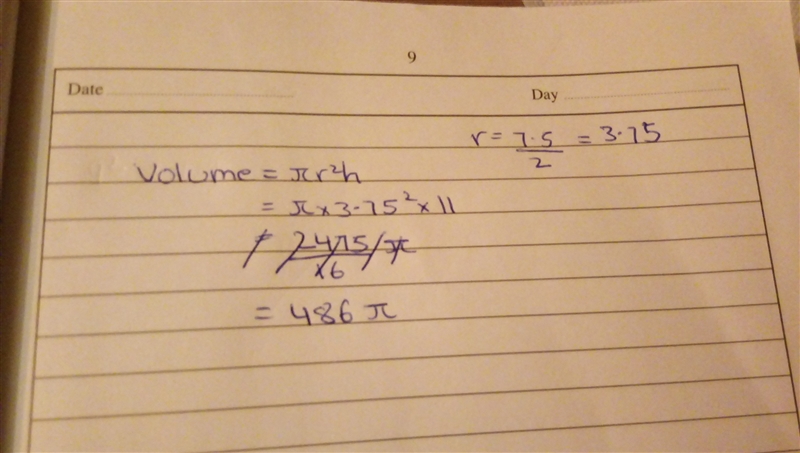 9
Date
Day
r = 7.5/2 = 3.75
Volume = πr²h
= π × 3.75² × 11
= 2475/16 π
= 486 π